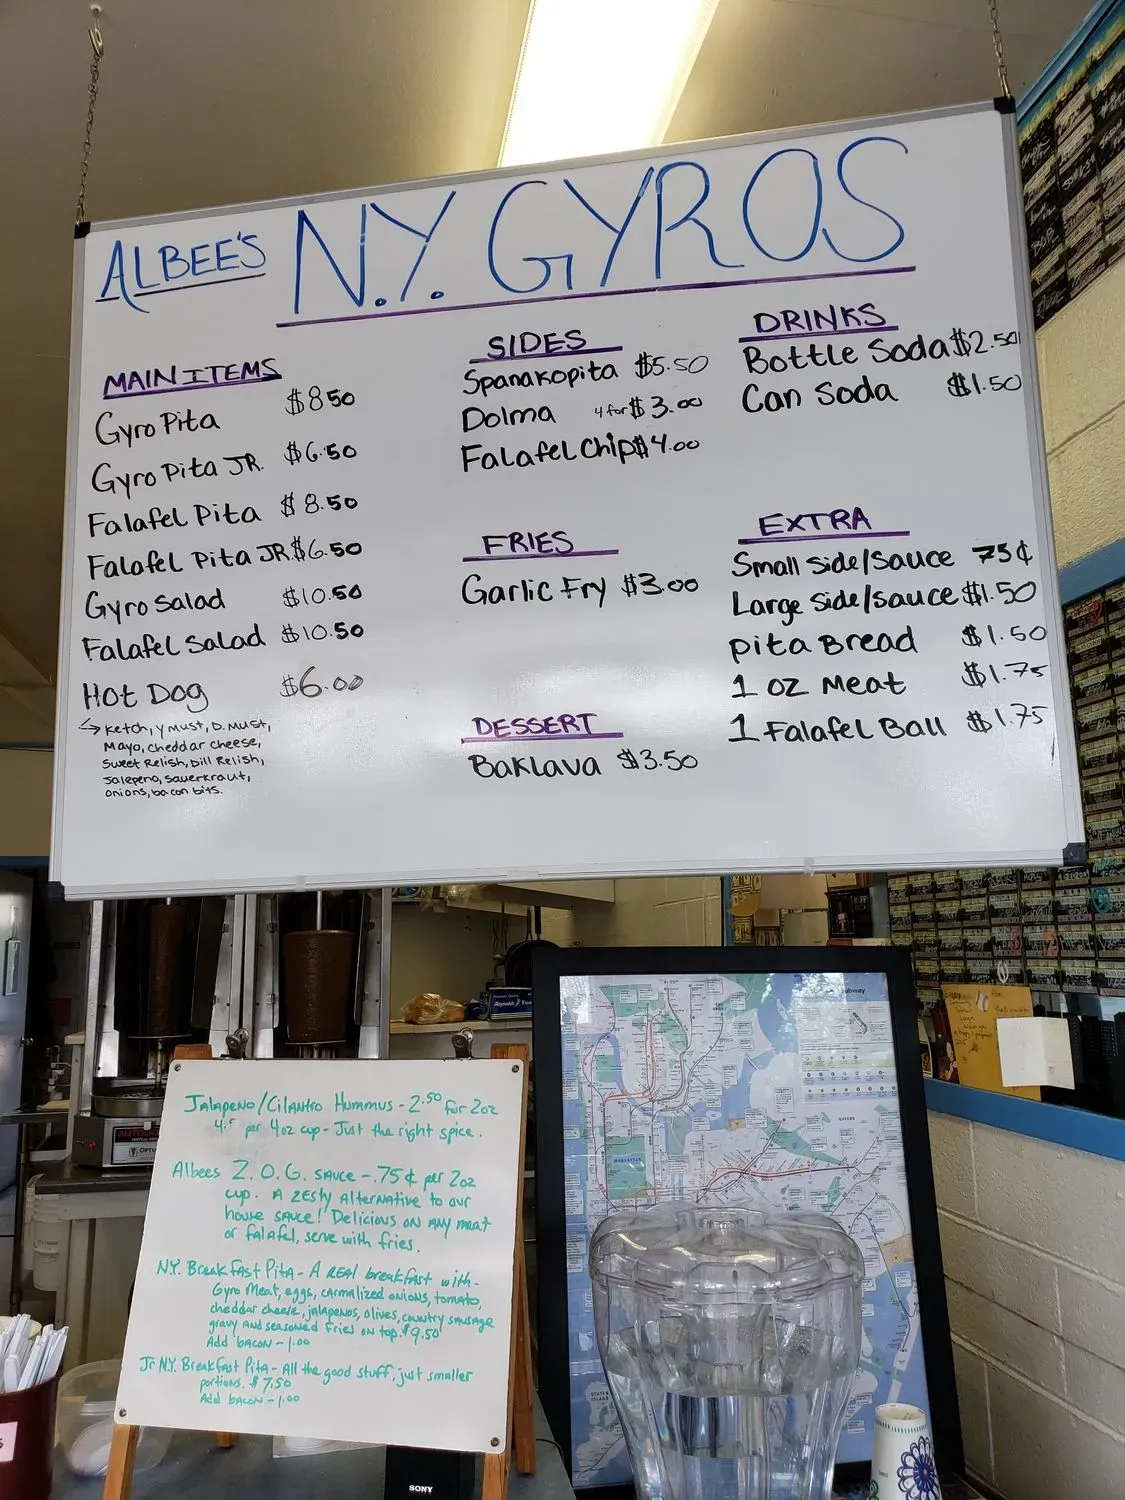 ALBEE'S N.Y. GYROS
MAIN ITEMS
Gyro Pita $8.50
Gyro Pita JR. $6.50
Falafel Pita $8.50
Falafel Pita JR. $6.50
Gyro Salad $10.50
Falafel Salad $10.50
Hot Dog $6.00
→ Ketch, Y Must, D. Must,
Mayo, cheddar cheese,
Sweet Relish, Dill Relish,
Jalepeno, sauerkraut,
onions, bacon bits.
SIDES
Spanakopita $5.50
Dolma 4 for $3.00
Falafel Chip $4.00
FRIES
Garlic Fry $3.00
DESSERT
Baklava $3.50
DRINKS
Bottle Soda $2.50
Can Soda $1.50
EXTRA
Small Side/Sauce 75¢
Large Side/Sauce $1.50
Pita Bread $1.50
1 oz Meat $1.75
1 Falafel Ball $1.75
Jalapeno/Cilantro Hummus - 2.50 for 2oz
per 4oz cup - Just the right spice.
Albees Z.O.G. Sauce - .75¢ per 2oz
cup. A zesty alternative to our
house sauce! Delicious on any meat
or falafel, serve with fries.
N.Y. Breakfast Pita - A REAL breakfast with -
Gyro Meat, eggs, carmalized onions, tomato,
cheddar cheese, jalapenos, olives, country sausage
gravy and seasoned fries on top. $9.50
Add bacon - 1.00
Jr N.Y. Breakfast Pita - All the good stuff, just smaller
portions. $7.50
Add bacon - 1.00
Subway
QUEENS
MANHATTAN
STATEN
ISLAND
SONY